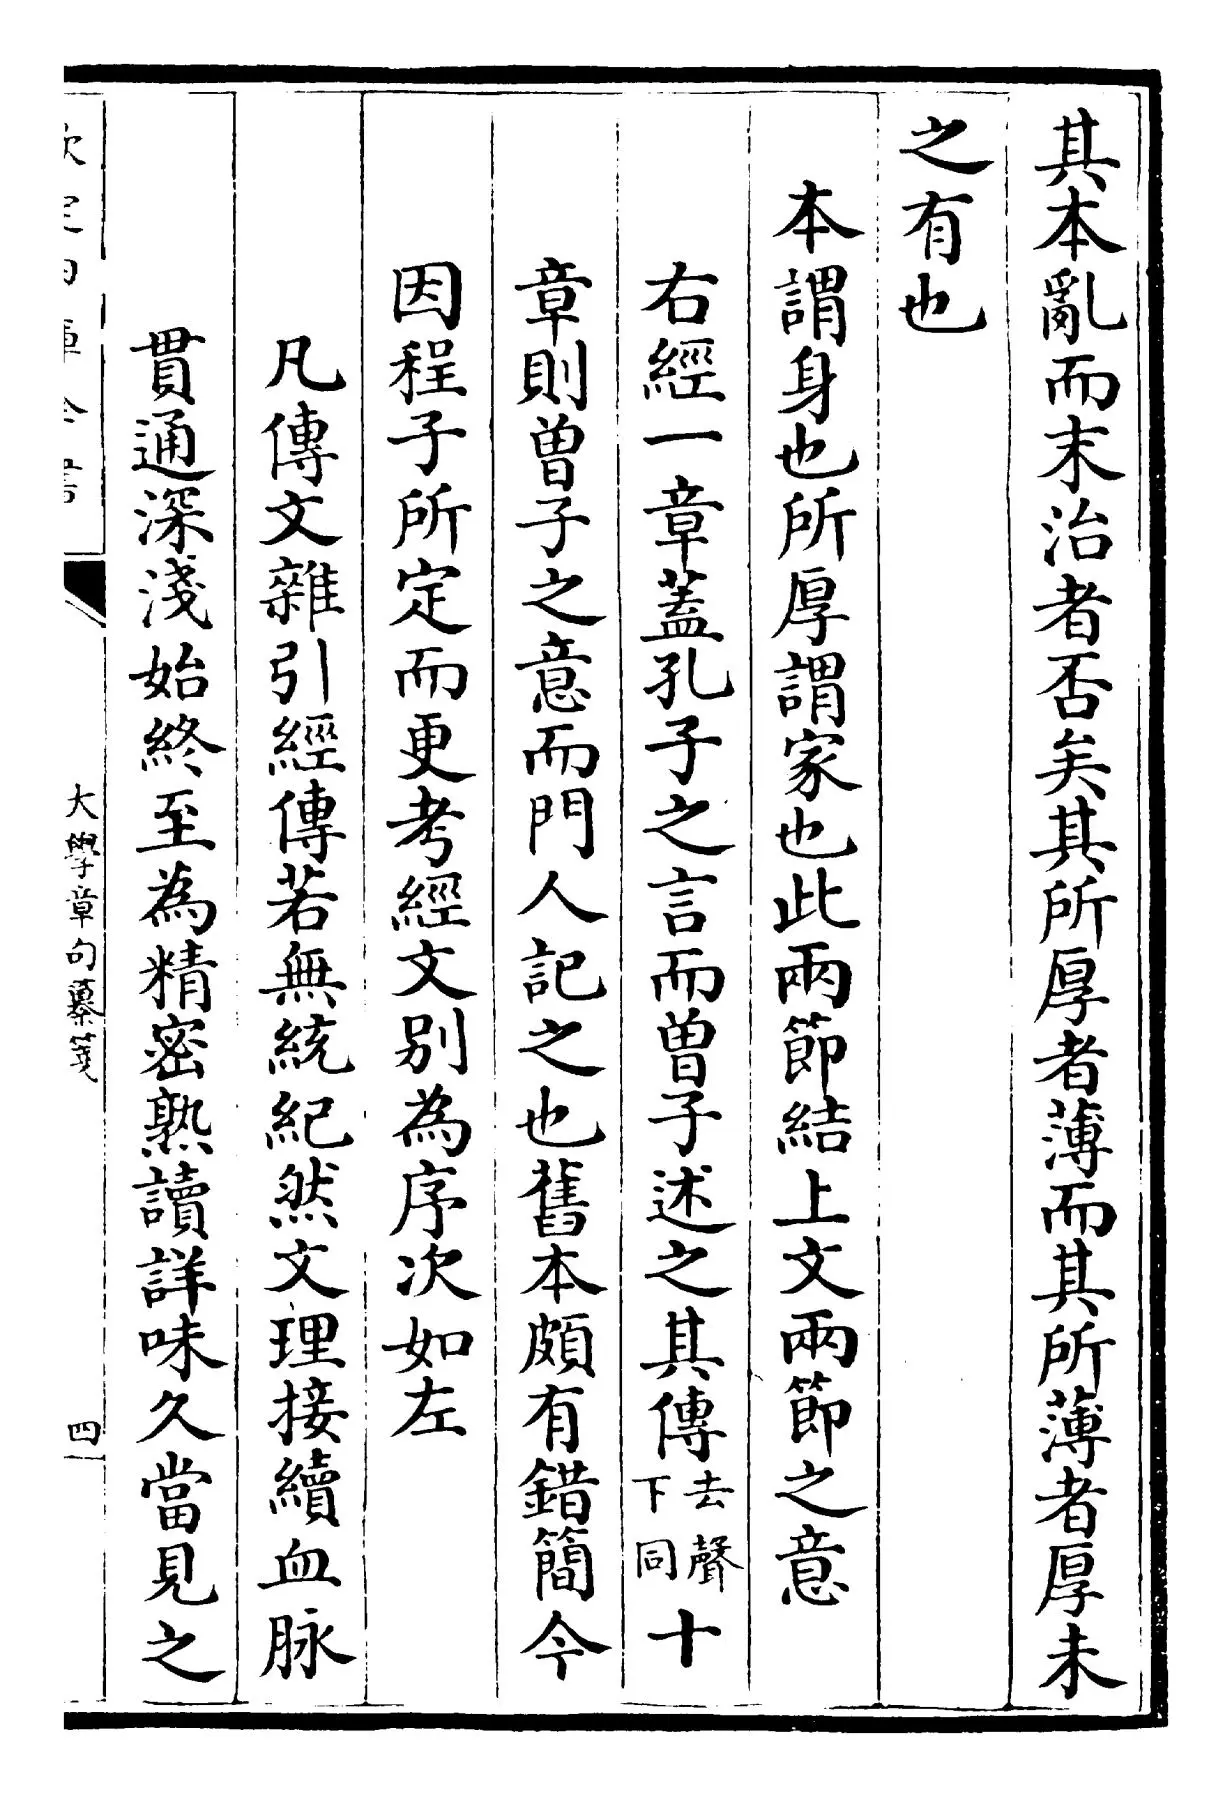 其本亂而末治者否矣其所厚者薄而其所薄者厚未
之有也
本謂身也所厚謂家也此兩節結上文兩節之意
右經一章蓋孔子之言而曾子述之其傳去聲下同十
章則曾子之意而門人記之也舊本頗有錯簡今
因程子所定而更考經文別為序次如左
凡傳文雜引經傳若無統紀然文理接續血脉
貫通深淺始終至為精密熟讀詳味久當見之
欽定四庫全書
大學章句纂箋
四